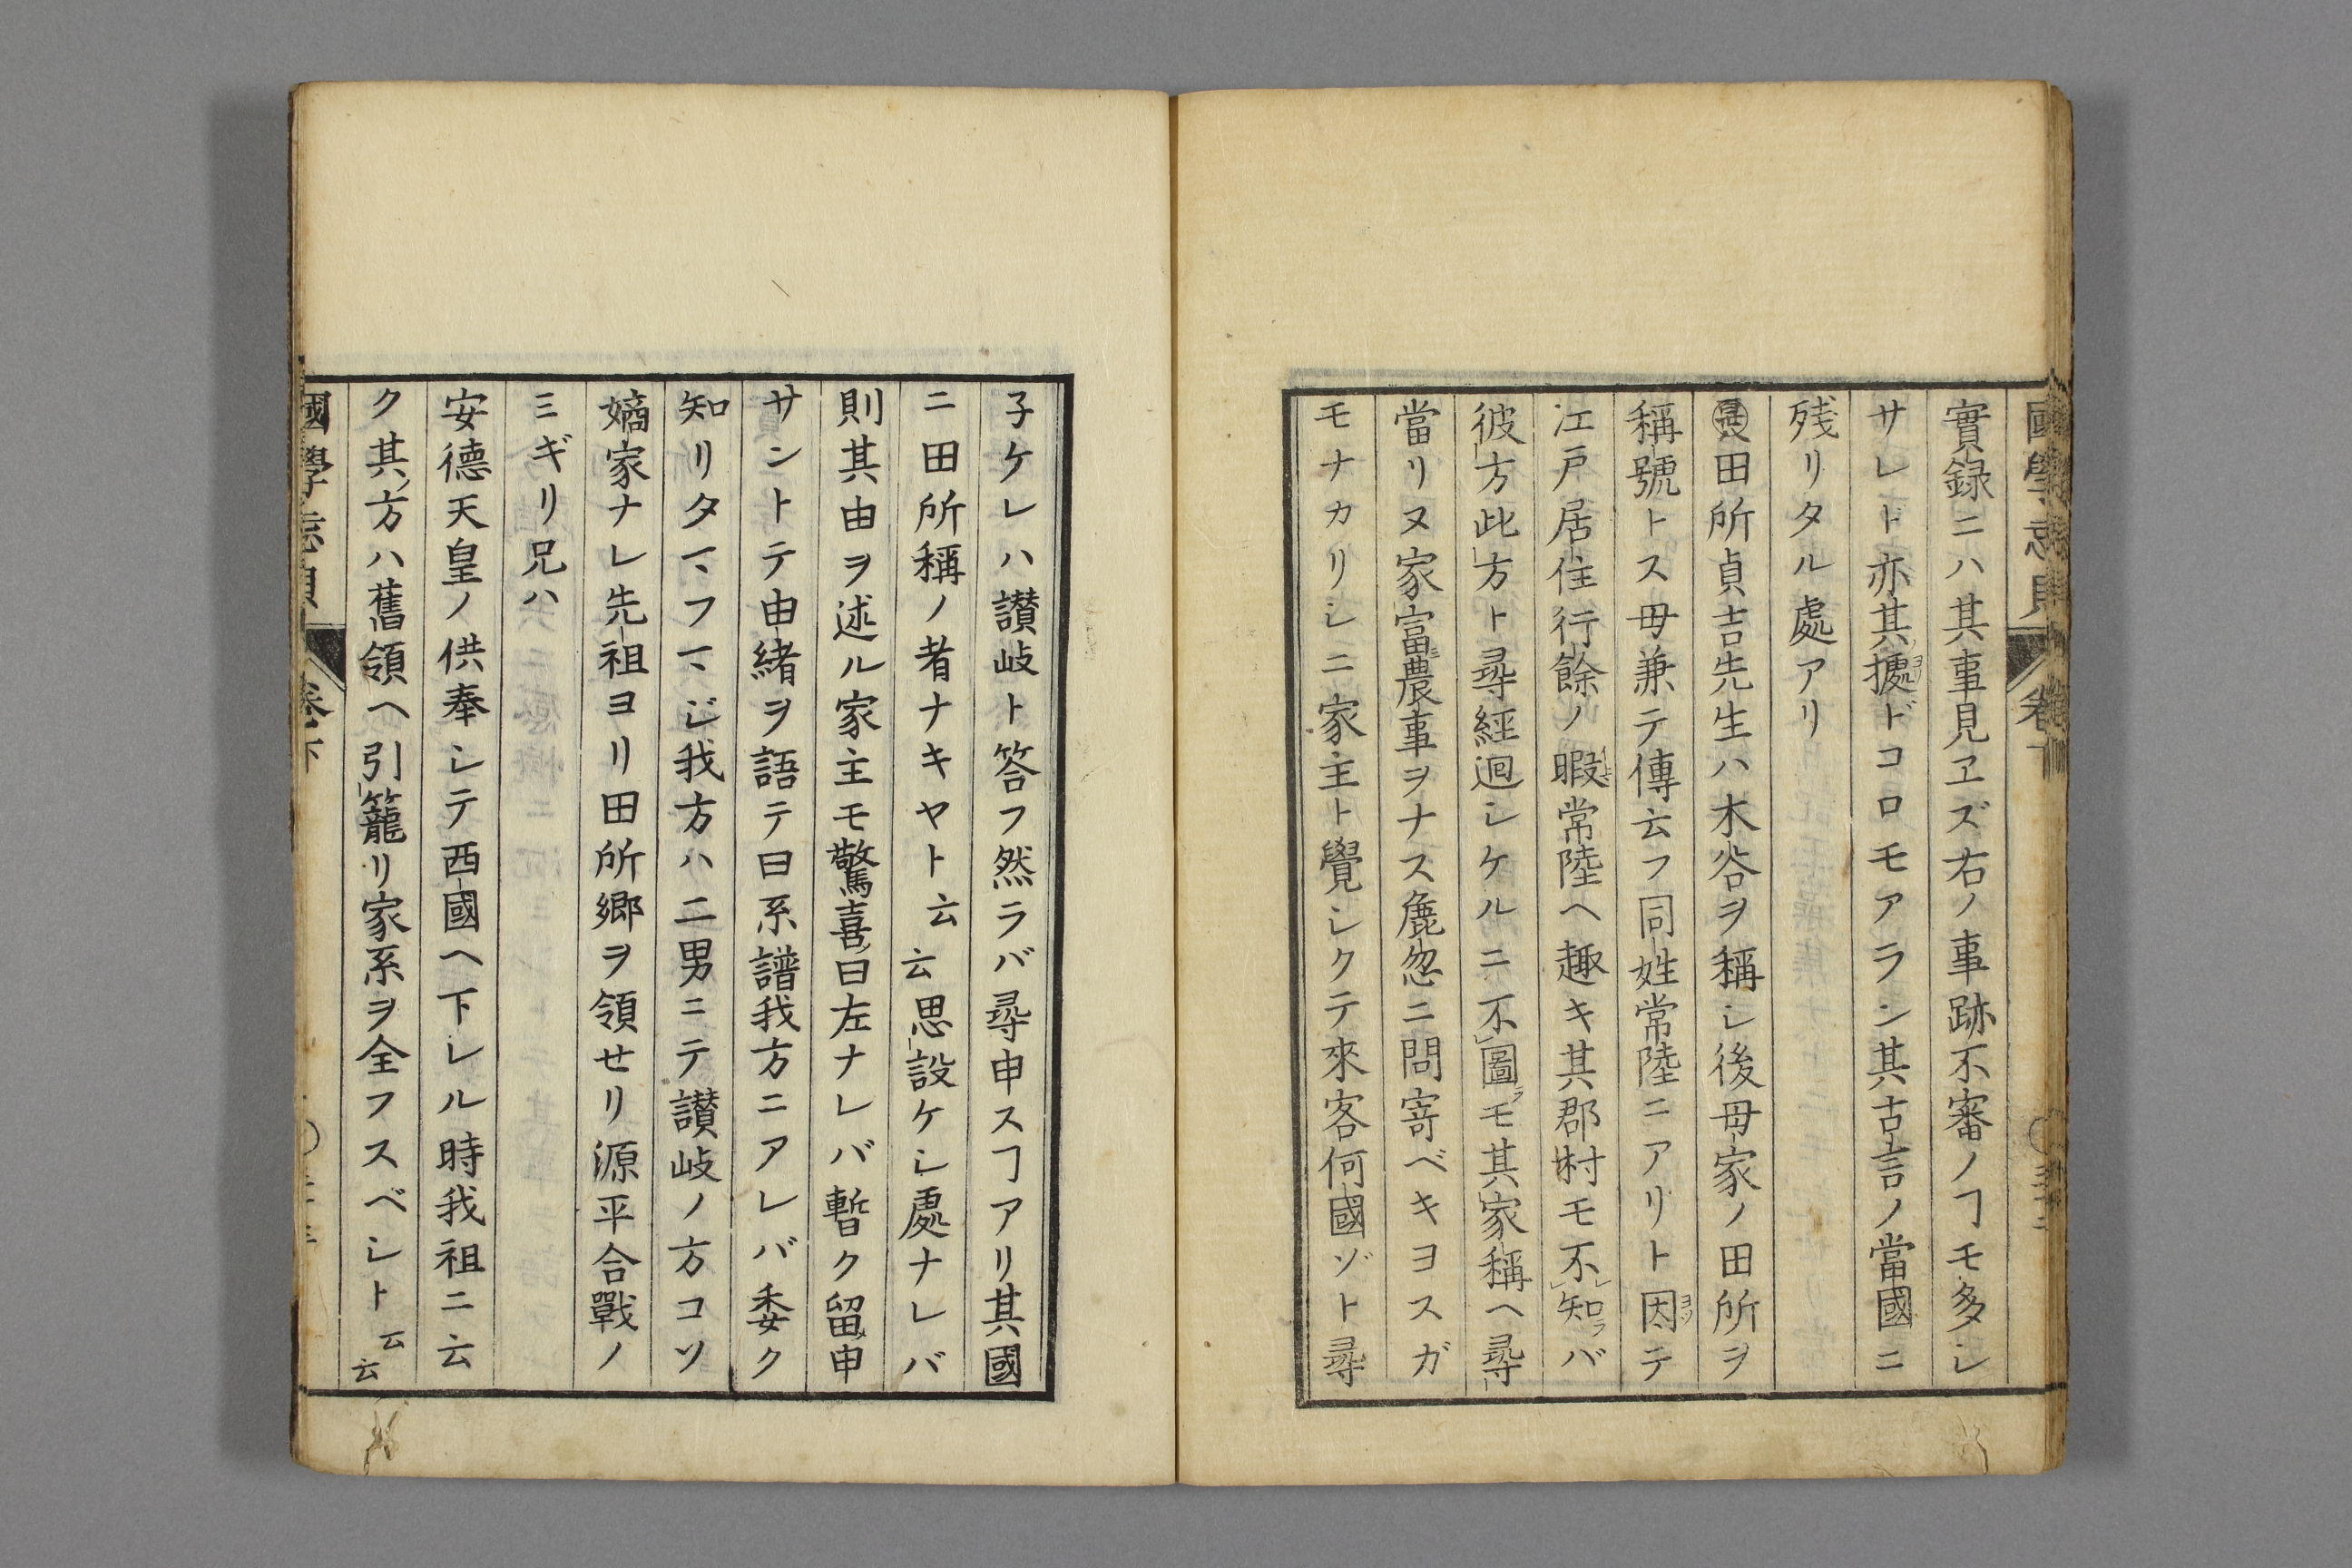 實録ニハ其事見ヱズ右ノ事跡不審ノヿモ多シ
サレド亦其據ドコロモアラン其古言ノ當國ニ
残リタル處アリ
田所貞吉先生ハ木谷ヲ稱シ後母家ノ田所ヲ
稱號トス母兼テ傳云フ同姓常陸ニアリト因テ
江戸居住行餘ノ暇常陸ヘ趣キ其郡村モ不知ラバ
彼方此方ト尋經迴シケルニ不圖モ其家稱ヘ尋
當リヌ家富農事ヲナス麁忽ニ問寄ベキヨスガ
モナカリシニ家主ト覺シクテ來客何國ゾト尋
子ケレハ讃岐ト答フ然ラバ尋申スヿアリ其國
ニ田所稱ノ者ナキヤト云云思設ケシ處ナレバ
則其由ヲ述ル家主モ驚喜曰左ナレバ暫ク留申
サントテ由緒ヲ語テ曰系譜我方ニアレバ委ク
知リタマフマジ我方ハ二男ニテ讃岐ノ方コソ
嫡家ナレ先祖ヨリ田所郷ヲ領セリ源平合戰ノ
ミギリ兄ハ
安德天皇ノ供奉シテ西國ヘ下レル時我祖ニ云
ク其方ハ舊領ヘ引籠リ家系ヲ全フスベシト云云
國學